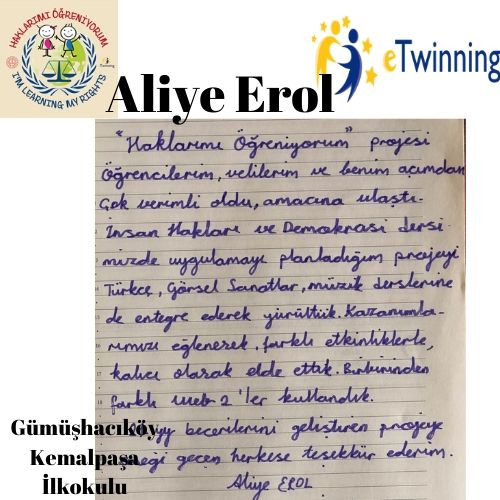 HAKLARIMI ÖĞRENİYORUM
I'M LEARNING MY RIGHTS
eTwinning
Aliye Erol
"Haklarımı Öğreniyorum" projesi
Öğrencilerim, velilerim ve benim açımdan
çok verimli oldu, amacına ulaştı.
İnsan Hakları ve Demokrasi dersi-
mizde uygulamayı planladığım projeyi
Türkçe, Görsel Sanatlar, müzik derslerine
de entegre ederek yürüttük. Kazanımla-
rımızı eğlenerek, farklı etkinliklerle,
kalıcı olarak elde ettik. Birbirinden
farklı web-2'ler kullandık.
becerilerini geliştiren projeye
emeği geçen herkese teşekkür ederim.
Aliye EROL
Gümüşhacıköy
Kemalpaşa
İlkokulu